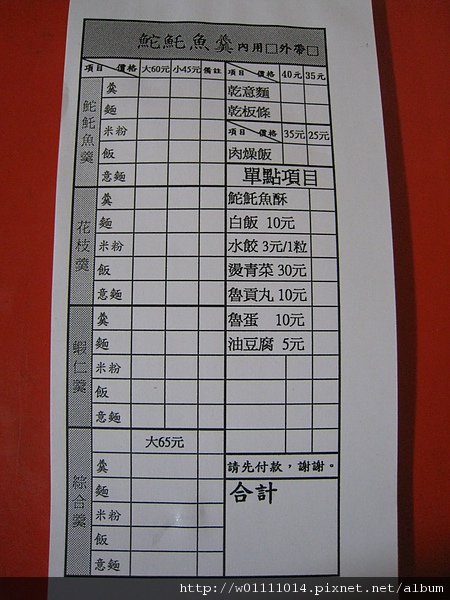 鮀魠魚羹 內用□外帶□
項目 價格 大60元 小45元 備註
鮀魠魚羹
羹
麵
米粉
飯
意麵
花枝羹
羹
麵
米粉
飯
意麵
蝦仁羹
羹
麵
米粉
飯
意麵
綜合羹
大65元
羹
麵
米粉
飯
意麵
項目 價格 40元 35元
乾意麵
乾板條
項目 價格 35元 25元
肉燥飯
單點項目
鮀魠魚酥
白飯 10元
水餃 3元/1粒
燙青菜 30元
魯貢丸 10元
魯蛋 10元
油豆腐 5元
請先付款，謝謝。
合計
http://w01111014.pixnet.net/album